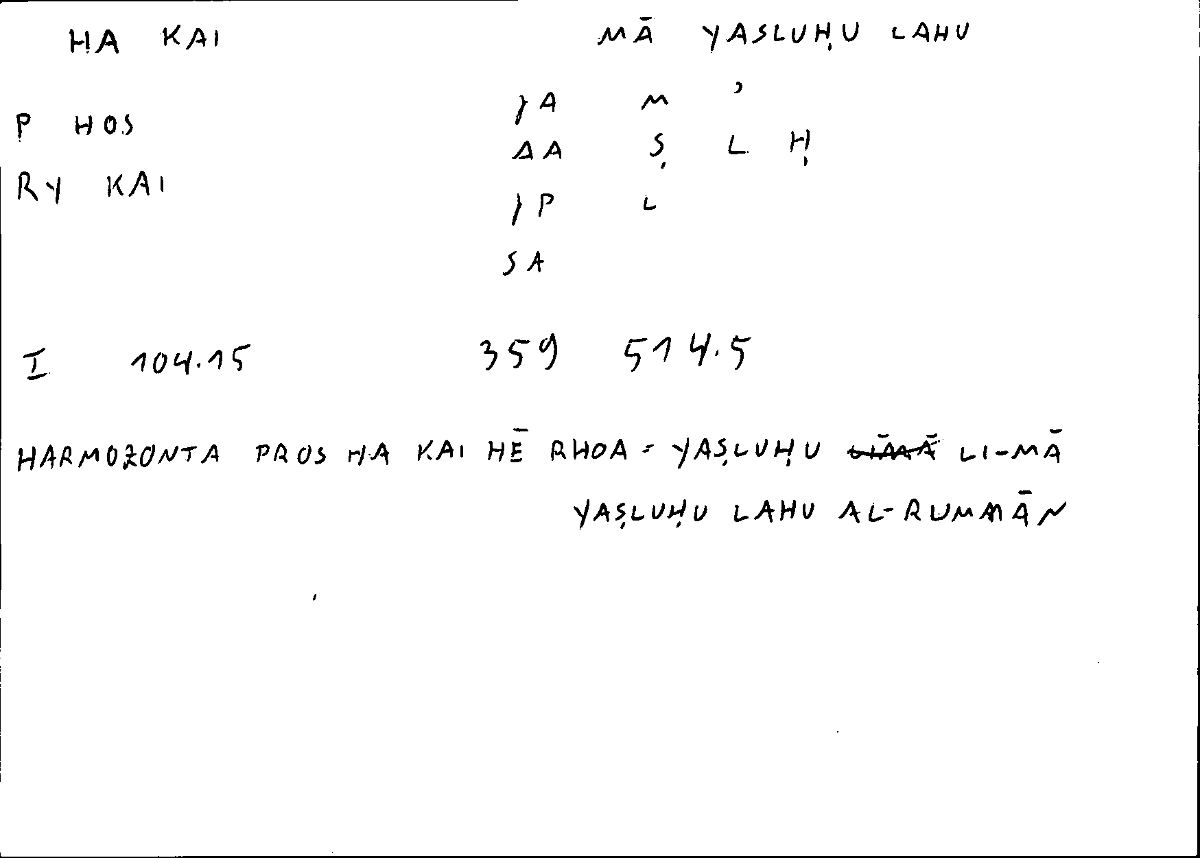 HA KAI MĀ YASLUḤU LAHU
JA M ʾ
P HOS
AA Ṣ L Ḥ
RY KAI
JP L
SA
I 104.15 359 514.5
HARMOZONTA PROS HA KAI HĒ RHOA = YAṢLUḤU LI-MĀ
YAṢLUḤU LAHU AL-RUMMĀN